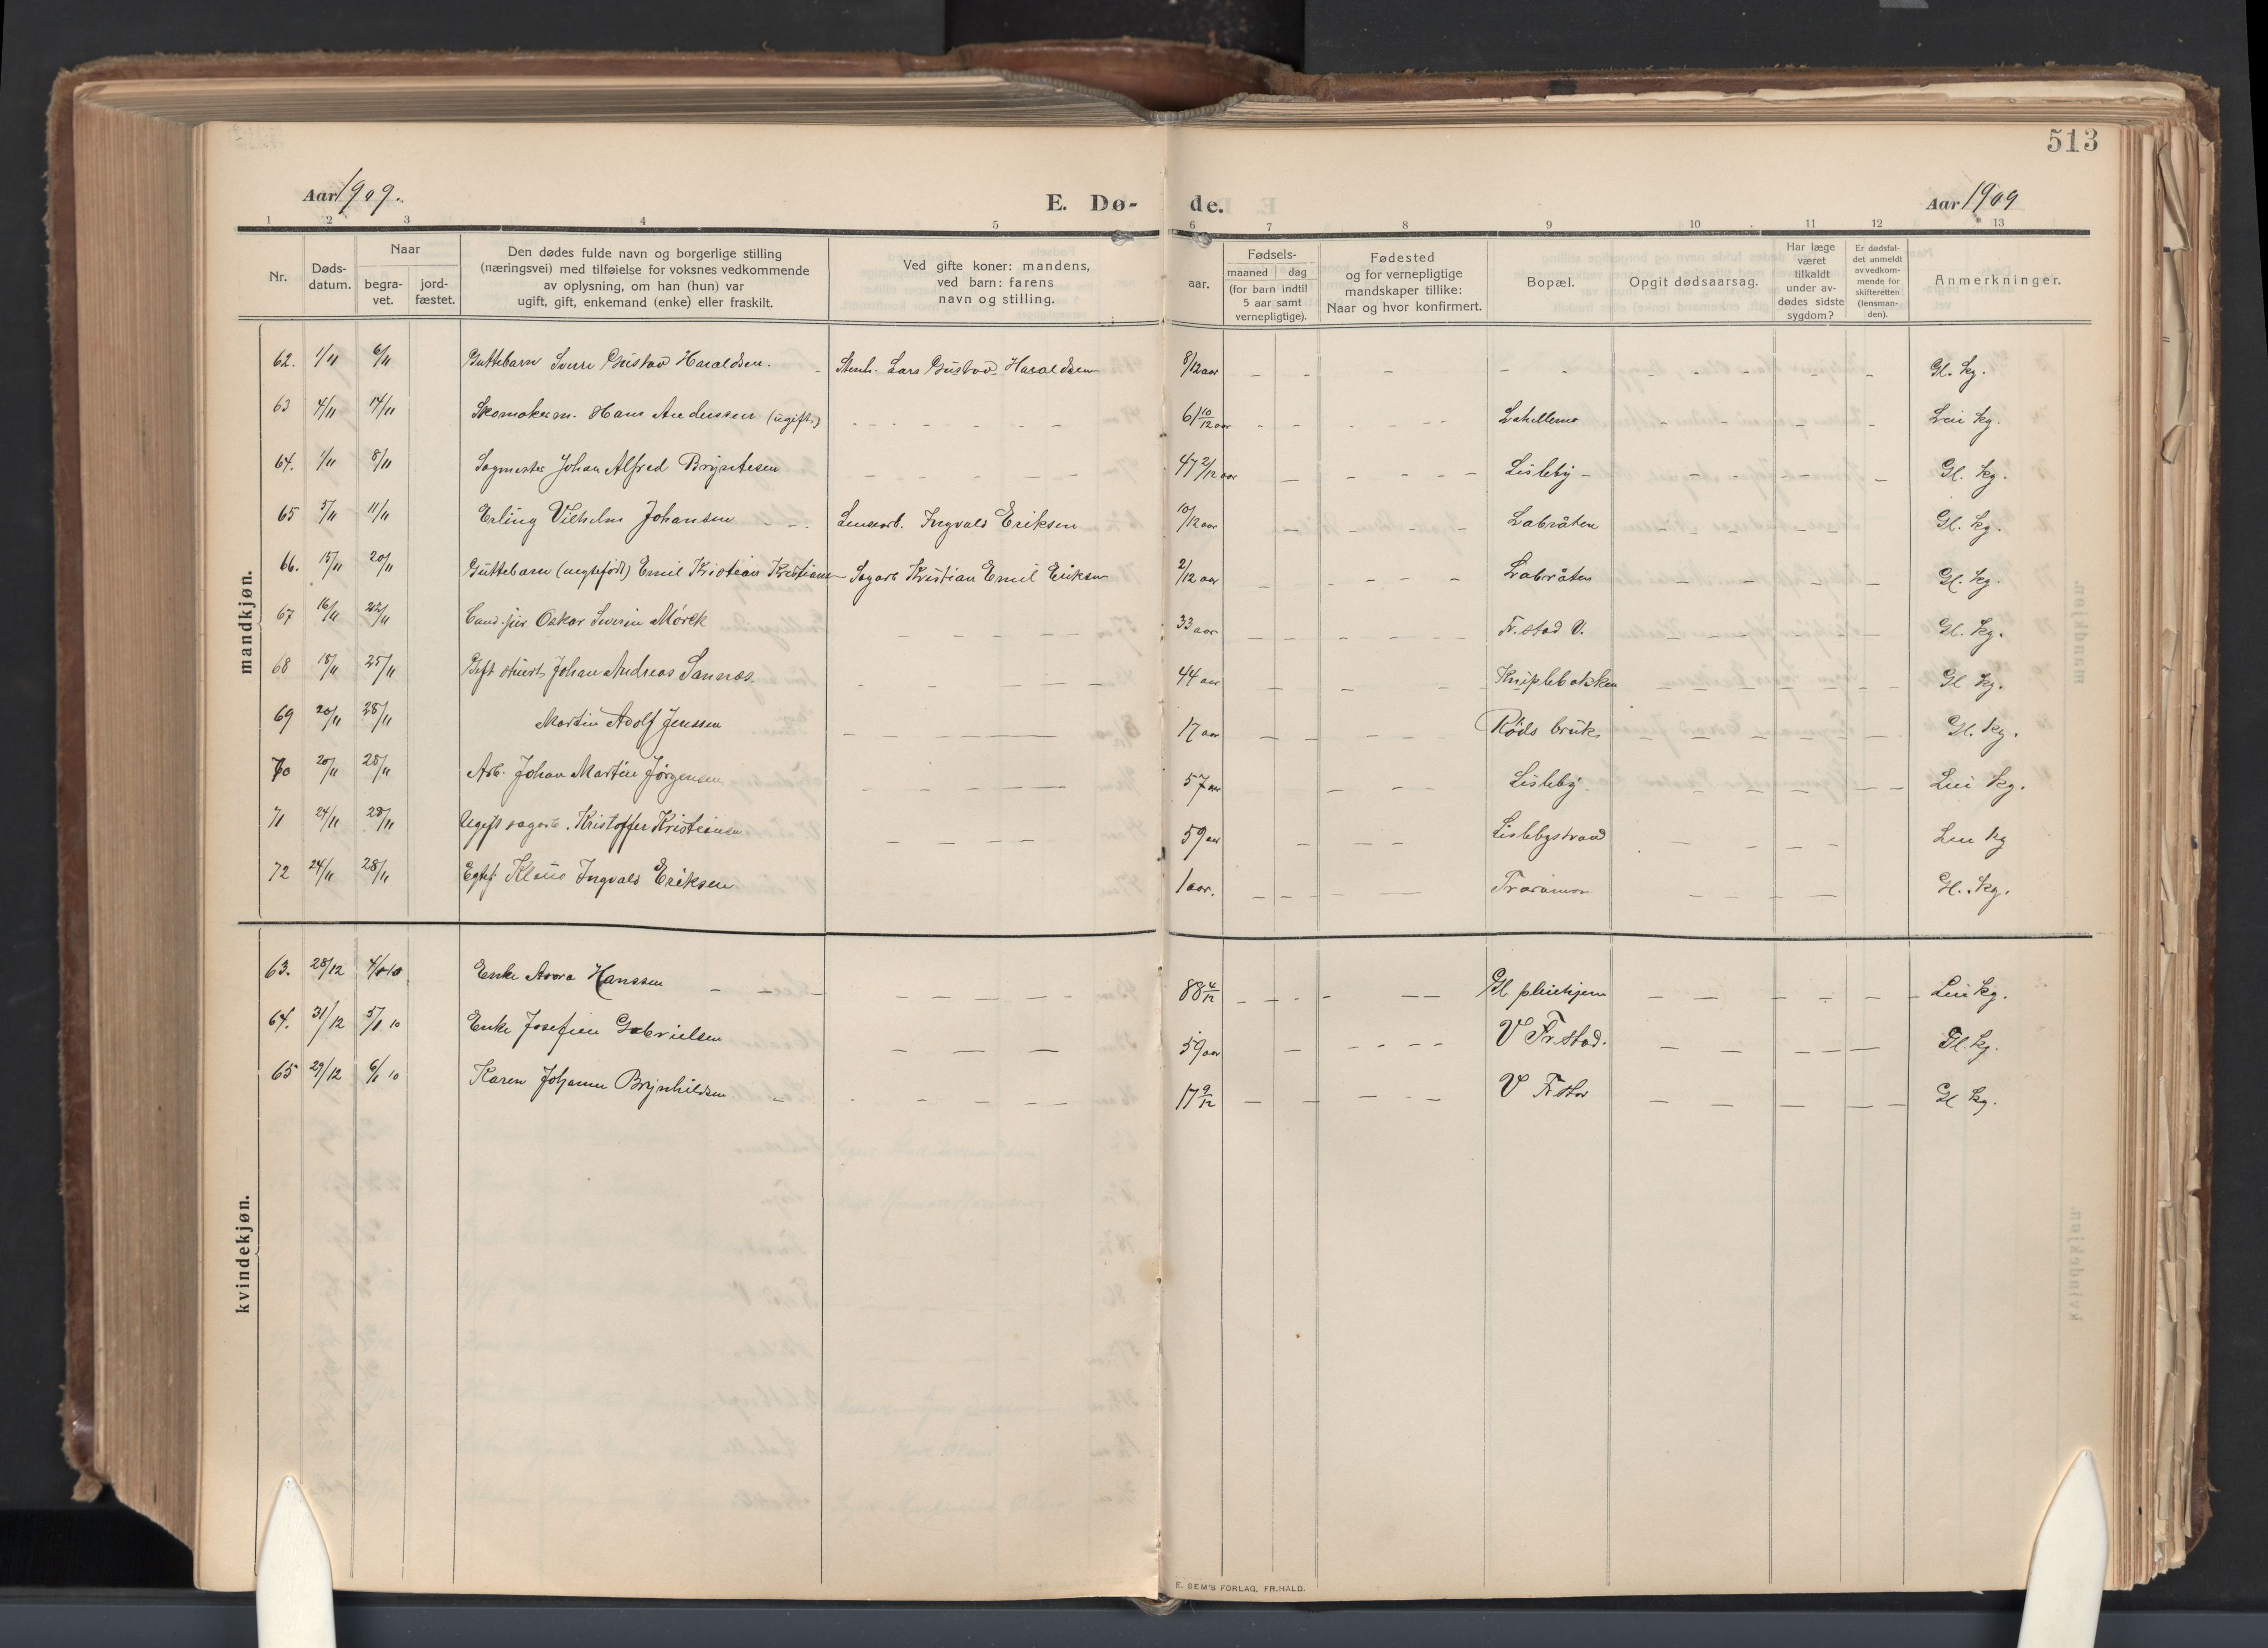 513
Aar 1909.
E. Dø- de.
Aar 1909
1 2 3 4 5 6 7 8 9 10 11 12 13
Nr. Døds-datum. Naar begra-vet. jord-fæstet. Den dødes fulde navn og borgerlige stilling (næringsvei) med tilføielse for voksnes vedkommende av oplysning, om han (hun) var ugift, gift, enkemand (enke) eller fraskilt. Ved gifte koner: mandens, ved barn: farens navn og stilling. aar. Fødsels- maaned dag (for barn indtil 5 aar samt vernepligtige). Fødested og for vernepligtige mandskaper tillike: Naar og hvor konfirmert. Bopæl. Opgit dødsaarsag. Har læge været tilkaldt under av-dødes sidste sygdom? Er dødsfal-det anmeldt av vedkom-mende for skifteretten (lensman-den). Anmerkninger.
mandkjøn.
62. 1/11 6/11 Guttebarn Sverre Gustav Haraldsen. Lars Gustav Haraldsen 8/12 aar Gl. kg.
63 4/11 14/11 Skomakerm. Hans Anderssen (ugift) 61 10/12 aar Leie kg.
64. 1/11 8/11 Sagmester Johan Alfred Bryntesen 47 2/12 aar Lisleby Gl. kg.
65 5/11 11/11 Erling Vilhelm Johansen Lensearb. Ingvald Eriksen 10/12 aar Labråten Gl. kg.
66. 15/11 20/11 Guttebarn (uegtefødt) Emil Kristian Kristiansen Sagarb Kristian Emil Eriksen 2/12 aar Labråten Gl. kg.
67 16/11 22/11 Cand. jur. Oskar Severin Mørck 33 aar Fr.stad V. Gl. kg.
68 18/11 25/11 Gift stuert Johan Andreas Sannæs. 44 aar Kniplebakken Gl kg.
69 20/11 28/11 Martin Adolf Jenssen 17 aar Røds bruk Gl. kg.
70 20/11 28/11 Arb. Johan Martin Jørgensen 57 aar Lisleby Leie kg.
71 24/11 28/11 Ugift sagarb. Kristoffer Kristiansen 59 aar Lislebystrand Leie kg
72 24/11 28/11 Egtef. Klaus Ingvald Eriksen 1 aar. Traramoen Gl. kg.
kvindekjøn.
63. 28/12 4/1 10 Enke Hanssen 88 4/12 Gl pleiehjem Leie kg.
64. 31/12 5/1 10 Enke Josefine Gabrielsen 59 aar V Fr.stad. Gl. kg.
65 29/12 6/1 10 Karen Johanne Brynhildsen 17 9/12 V Fr.stad Gl kg.
E. SEM'S FORLAG, FR.HALD.